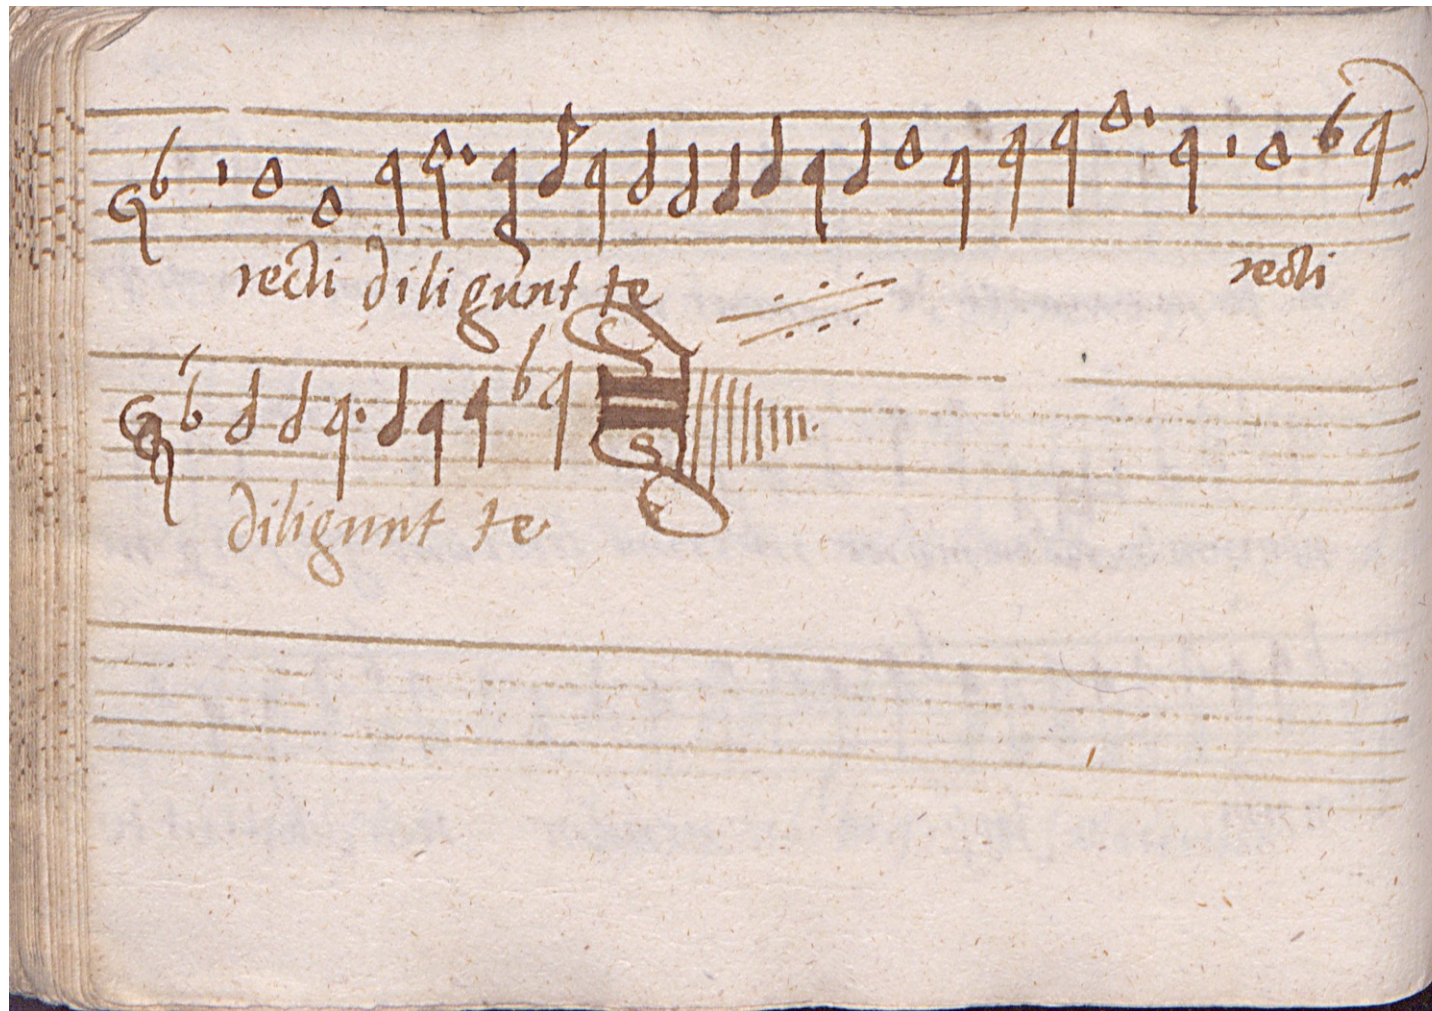 recti diligunt te recti
diligunt te